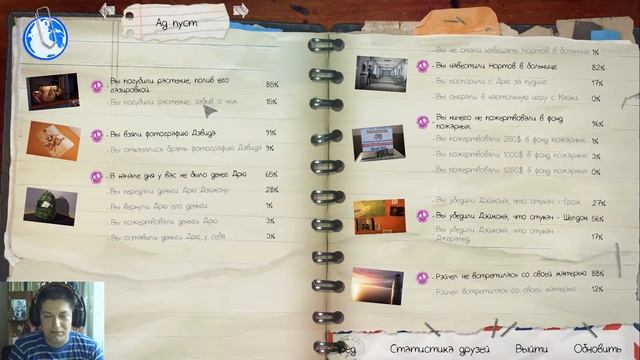 Ад пуст
- Вы погубили растение, полив его
газировкой. 85%
- Вы погубили растение, забыв о нем. 15%
- Вы взяли фотографию Дэвида. 91%
- Вы отказались брать фотографию Дэвида. 9%
- В начале дня у вас не было денег Дрю. 65%
- Вы передали деньги Дрю Дэймону. 28%
- Вы вернули Дрю его деньги. 1%
- Вы пожертвовали деньги Дрю. 3%
- Вы оставили деньги Дрю у себя. 3%
- Вы не стали навещать Нортов в больнице. 1%
- Вы навестили Нортов в больнице. 82%
- Вы поспорили с Дрю за пудинг. 17%
- Вы сыграли в настольную игру с Майки. 0%
- Вы ничего не пожертвовали в фонд
пожарных. 96%
- Вы пожертвовали 250$ в фонд пожарных. 1%
- Вы пожертвовали 1000$ в фонд пожарных. 3%
- Вы пожертвовали 1260$ в фонд пожарных. 0%
- Вы убедили Дэймона, что стукач - Грок. 27%
- Вы убедили Дэймона, что стукач - Шелдон. 56%
- Вы убедили Дэймона, что стукач -
Джеральд. 17%
- Рэйчел не встретилась со своей матерью. 88%
- Рэйчел встретилась со своей матерью. 12%
Статистика друзей Выйти Обновить